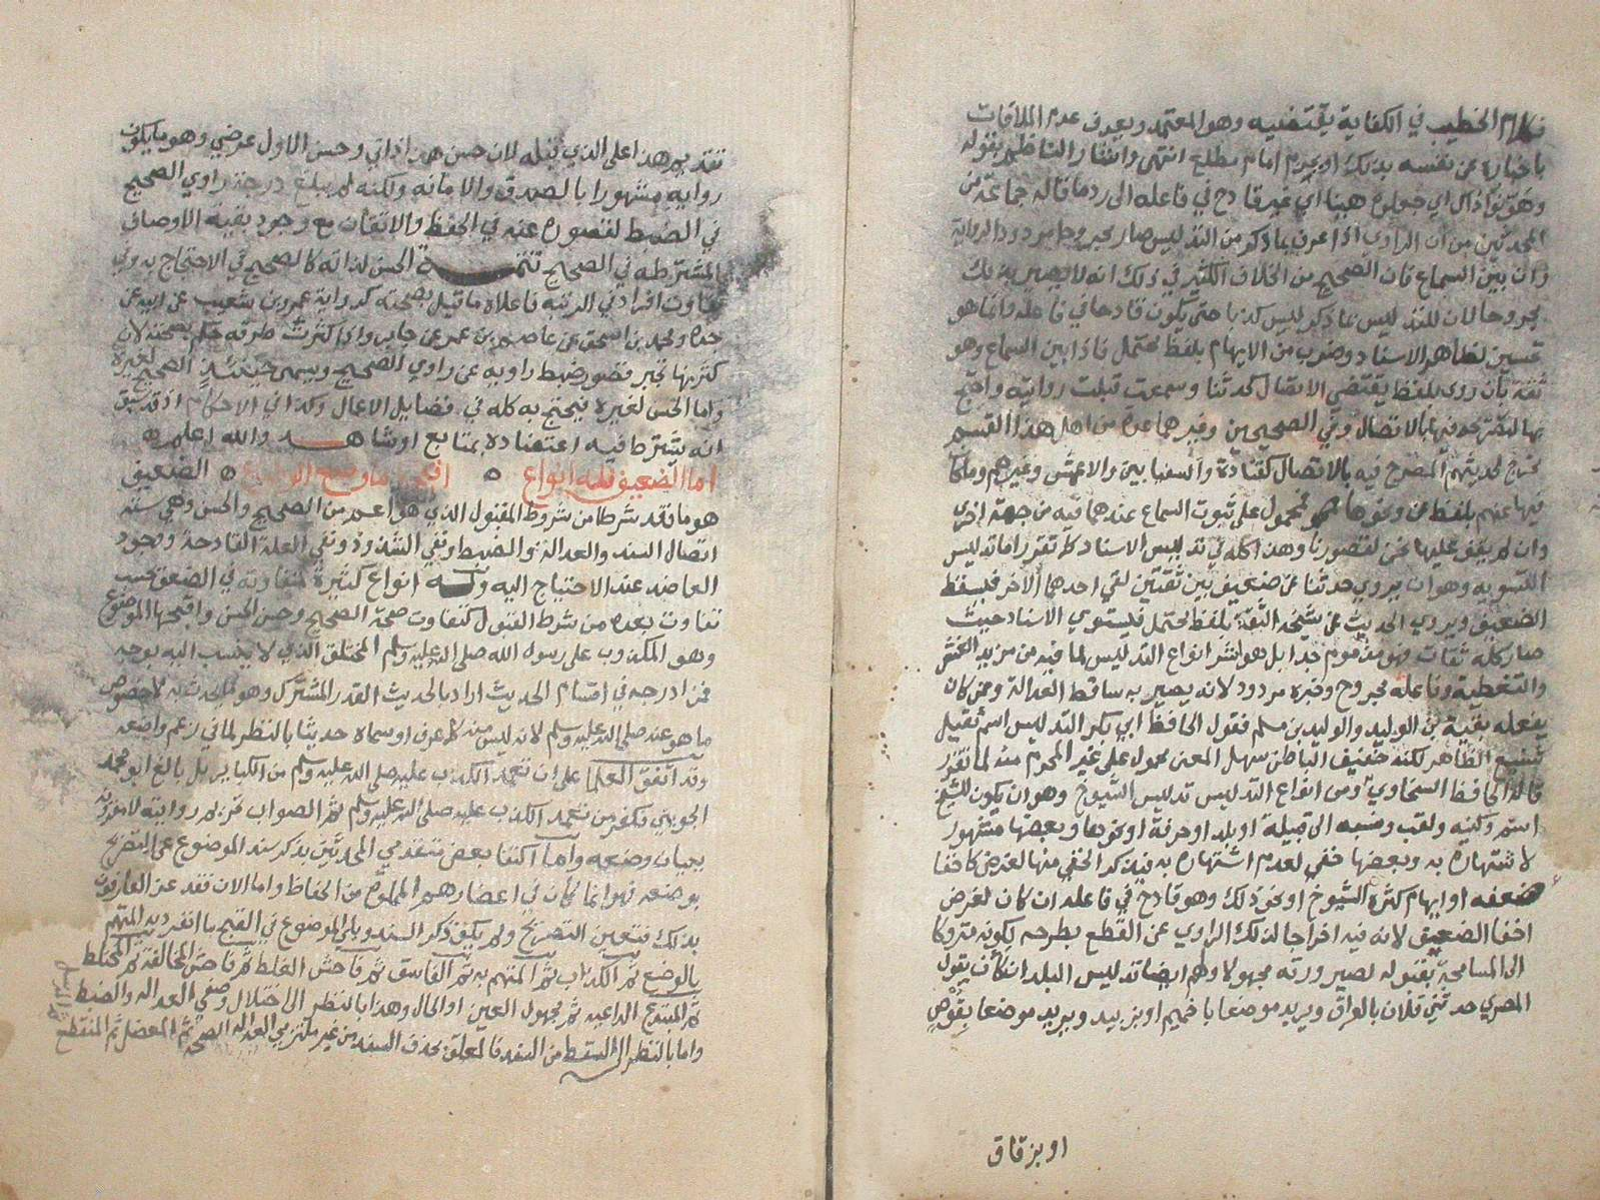 فكلام الخطيب في الكفاية يقتضيه وهو المعتمد ويعرف عدم الملاقات
باخباره عن نفسه بذلك او بجزم امام مطلع انتهى واشار الناظم بقوله
اي غير قادح في فاعله الى رد ما قاله جماعة من
المحدثين من ان الراوي اذا عرف بما ذكر من التدليس صار مجروحا مردود الرواية
وان بين السماع فان الصحيح من الخلاف الكثير في ذلك انه لا يصير بذلك
مجروحا لان التدليس بما ذكر ليس كذبا حتى يكون قادحا في فاعله وانما هو
تحسين لظاهر الاسناد وضرب من الايهام بلفظ محتمل فاذا بين السماع وهو
ثقة بأن روى بلفظ يقتضي الاتصال كحدثنا وسمعت قبلت روايته واحتج
بها لتصريحه فيها بالاتصال وفي الصحيحين وغيرهما عدة من اهل هذا القسم
مخرج لحديثهم المصرح فيه بالاتصال كقتادة والسفيانين والاعمش وغيرهم وما كا
فيها عنهم بلفظ عن ونحوها محمول على ثبوت السماع عندهما فيه من جهة اخرى
وان لم يقف عليها نحن لقصورنا وهذا كله في تدليس الاسناد كما تقرر اما تدليس
التسوية وهو ان يروي حدثنا عن ضعيف بين ثقتين لقي احدهما الآخر فيسقط
الضعيف ويروي الحديث عن شيخه الثقة بلفظ محتمل فيستوي الاسناد حيث
صار كله ثقات فهو مذموم جدا بل هو اشر انواع التدليس لما فيه من مزيد الغش
والتغطية وفاعله مجروح وخبره مردود لانه يصير به ساقط العدالة وممن كان
يفعله بقية بن الوليد والوليد بن مسلم فقول الحافظ ابي بكر التدليس اسم ثقيل
شنيع الظاهر لكنه خفيف الباطن سهل المعنى محمول على غير المحرم منه لما تقرر
قاله الحافظ السخاوي ومن انواع التدليس تدليس الشيوخ وهو ان يكون للشيخ
اسم وكنيه ولقب ونسبه الى قبيلة او بلد او حرفة او نحوها وبعضها مشهور
لاشتهاره به وبعضها خفي لعدم اشتهاره به فيذكر الخفي منها لغرض كاخفا
ضعفه او ايهام كثرة الشيوخ او نحو ذلك وهو قادح في فاعله ان كان لغرض
اخفا الضعيق لانه فيه اخراجا لذلك الراوي عن القطع بطرحه لكونه متروكا
الى المسامحة بقبوله لصيرورته مجهولا ولهم ايضا تدليس البلدان كأن يقول
المصري حدثني فلان بالعراق ويريد موضعا باخميم او بزبيد ويريد موضعا بقوص
او بزقاق
وهذا اعلى الذي قبله لان حسن هذا ذاتي وحسن الاول عرضي وهو ما يكون
راويه مشهورا بالصدق والامانه ولكنه لم يبلغ درجة راوي الصحيح
في الضبط لقصوره عنه في الحفظ والاتقان مع وجود بقية الاوصاف
المشترطه في الصحيح تتمة الحسن لذاته كالصحيح في الاحتجاج به وفي
تفاوت افراده في الرتبه فاعلاه ما قيل بصحته كرواية عمرو بن شعيب عن ابيه عن
جده ومحمد بن اسحق عن عاصم بن عمر عن جابر واذا كثرت طرقه حكم بصحته لان
كثرتها تجبر قصور ضبط راويه عن راوي الصحيح ويسمى حينئذ الصحيح لغيره
واما الحسن لغيره فيحتج به كله في فضايل الاعمال وكذا في الاحكام اذ قد سبق
انه يشترط فيه اعتضاده بمتابع او شاهد والله اعلم
اما الضعيف فله انواع اقبحها ما وضع الضعيف
هو ما فقد شرطا من شروط المقبول الذي هو اعم من الصحيح والحسن وهي سته
اتصال السند والعدالة والضبط ونفي الشذوذ ونفي العلة القادحة ووجود
العاضد عند الاحتياج اليه وله انواع كثيرة متفاوته في الضعف بحسب
تفاوت بعده من شرط القبول كتفاوت صحة الصحيح وحسن الحسن واقبحها الموضوع
وهو المكذوب على رسول الله صلى الله عليه وسلم المختلق الذي لا ينسب اليه بوجه
فمن ادرجه في اقسام الحديث اراد بالحديث القدر المشترك وهو ما يحدث به لا خصوص
ما هو عنه صلى الله عليه وسلم لانه ليس منه كما عرف او سماه حديثا بالنظر لما في زعم واضعه
وقد اتفق العلما على ان تعمد الكذب عليه صلى الله عليه وسلم من الكباير بل بالغ ابو محمد
الجويني فكفر من تعمد الكذب عليه صلى الله عليه وسلم ثم الصواب تحريم روايته لا مقرونه
ببيان وضعه واما اكتفا بعض متقدمي المحدثين بذكر سند الموضوع عن التصريح
بوضعه فهو انما كان في اعصارهم المملوءة من الحفاظ واما الان فقد عز العارفون
بذلك فتعين التصريح ولم يكف ذكر السند ويلي الموضوع في القبح ما انفرد به المتهم
بالوضع ثم الكذاب ثم المتهم به ثم الفاسق ثم فاحش الغلط ثم فاحش المخالفة ثم المختلط
ثم المبتدع الداعيه ثم مجهول العين او الحال وهذا بالنظر الى اختلال وصفي العداله والضبط
واما بالنظر الى السقط من السند فالمعلق بحذف السند من غير ملتزمي الصحة ثم المعضل ثم المنقطع